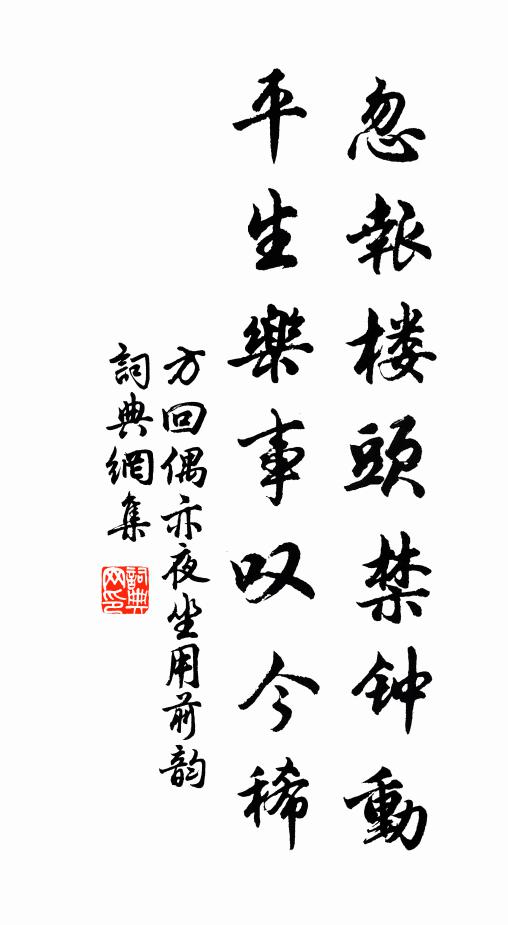 忽報楼頭禁钟動
平生樂事叹今稀
方回偶亦夜坐用前韵
詞典網集
詞典网印